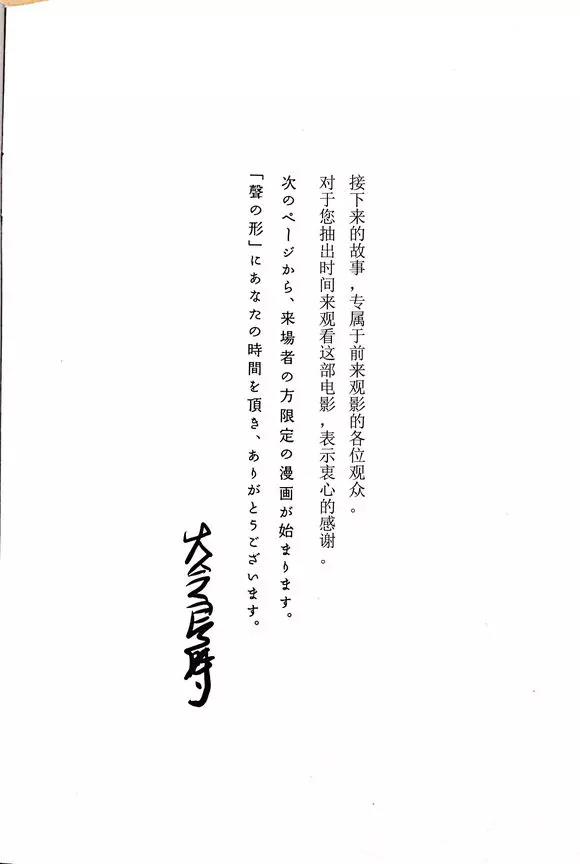 接下来的故事，专属于前来观影的各位观众。
对于您抽出时间来观看这部电影，表示衷心的感谢。
次のページから、来場者の方限定の漫画が始まります。
「聲の形」にあなたの時間を頂き、ありがとうございます。
大今良時